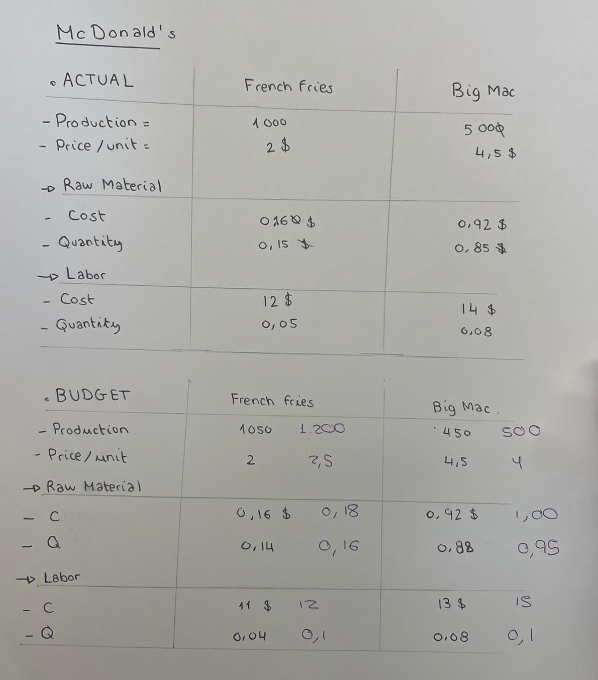 McDonald's
• ACTUAL French fries Big Mac
- Production = 1000 5 000
- Price / unit = 2 $ 4,5 $
→ Raw Material
- Cost 0,92 $
- Quantity 0,15 0,85
→ Labor
- Cost 12 $ 14 $
- Quantity 0,05 0,08
• BUDGET French fries Big Mac.
- Production 1050 1200 450 500
- Price / unit 2 2,5 4,5 4
→ Raw Material
- C 0,16 $ 0,18 0,92 $ 1,00
- Q 0,14 0,16 0,88 0,95
→ Labor
- C 11 $ 12 13 $ 15
- Q 0,04 0,1 0,08 0,1